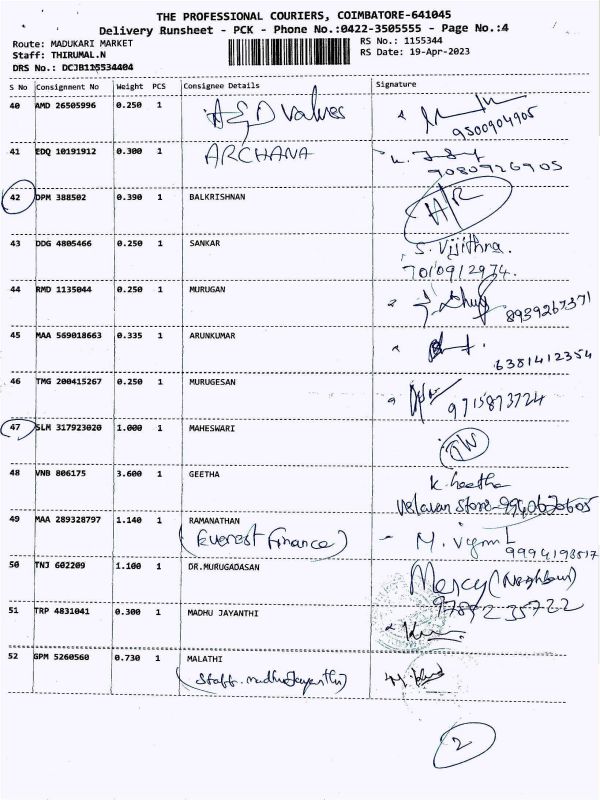 THE PROFESSIONAL COURIERS, COIMBATORE-641045
Delivery Runsheet - PCK - Phone No.:0422-3505555 - Page No.:4
Route: MADUKARI MARKET RS No.: 1155344
Staff: THIRUMAL.N RS Date: 19-Apr-2023
DRS No.: DCJB115534404
S No Consignment No Weight PCS Consignee Details Signature
40 AMD 26505996 0.250 1 A & D Valves
9500904905
41 EDQ 10191912 0.300 1 ARCHANA
9080926905
42 DPM 388502 0.390 1 BALKRISHNAN H/R
43 DDG 4805466 0.250 1 SANKAR S. Vijithra.
7010912974.
44 RMD 1135044 0.250 1 MURUGAN
8939267371
45 MAA 569018663 0.335 1 ARUNKUMAR
6381412354
46 TMG 200415267 0.250 1 MURUGESAN
9715873724
47 SLM 317923020 1.000 1 MAHESWARI
48 VNB 806175 3.600 1 GEETHA K. Geetha
Velavan Store
49 MAA 289328797 1.140 1 RAMANATHAN
(Everest Finance) M.
50 TNJ 602209 1.100 1 DR.MURUGADASAN Mercy (Neighbour)
51 TRP 4831041 0.300 1 MADHU JAYANTHI
52 GPM 5260560 0.730 1 MALATHI
(Staff. madhu Jayanthi)
2